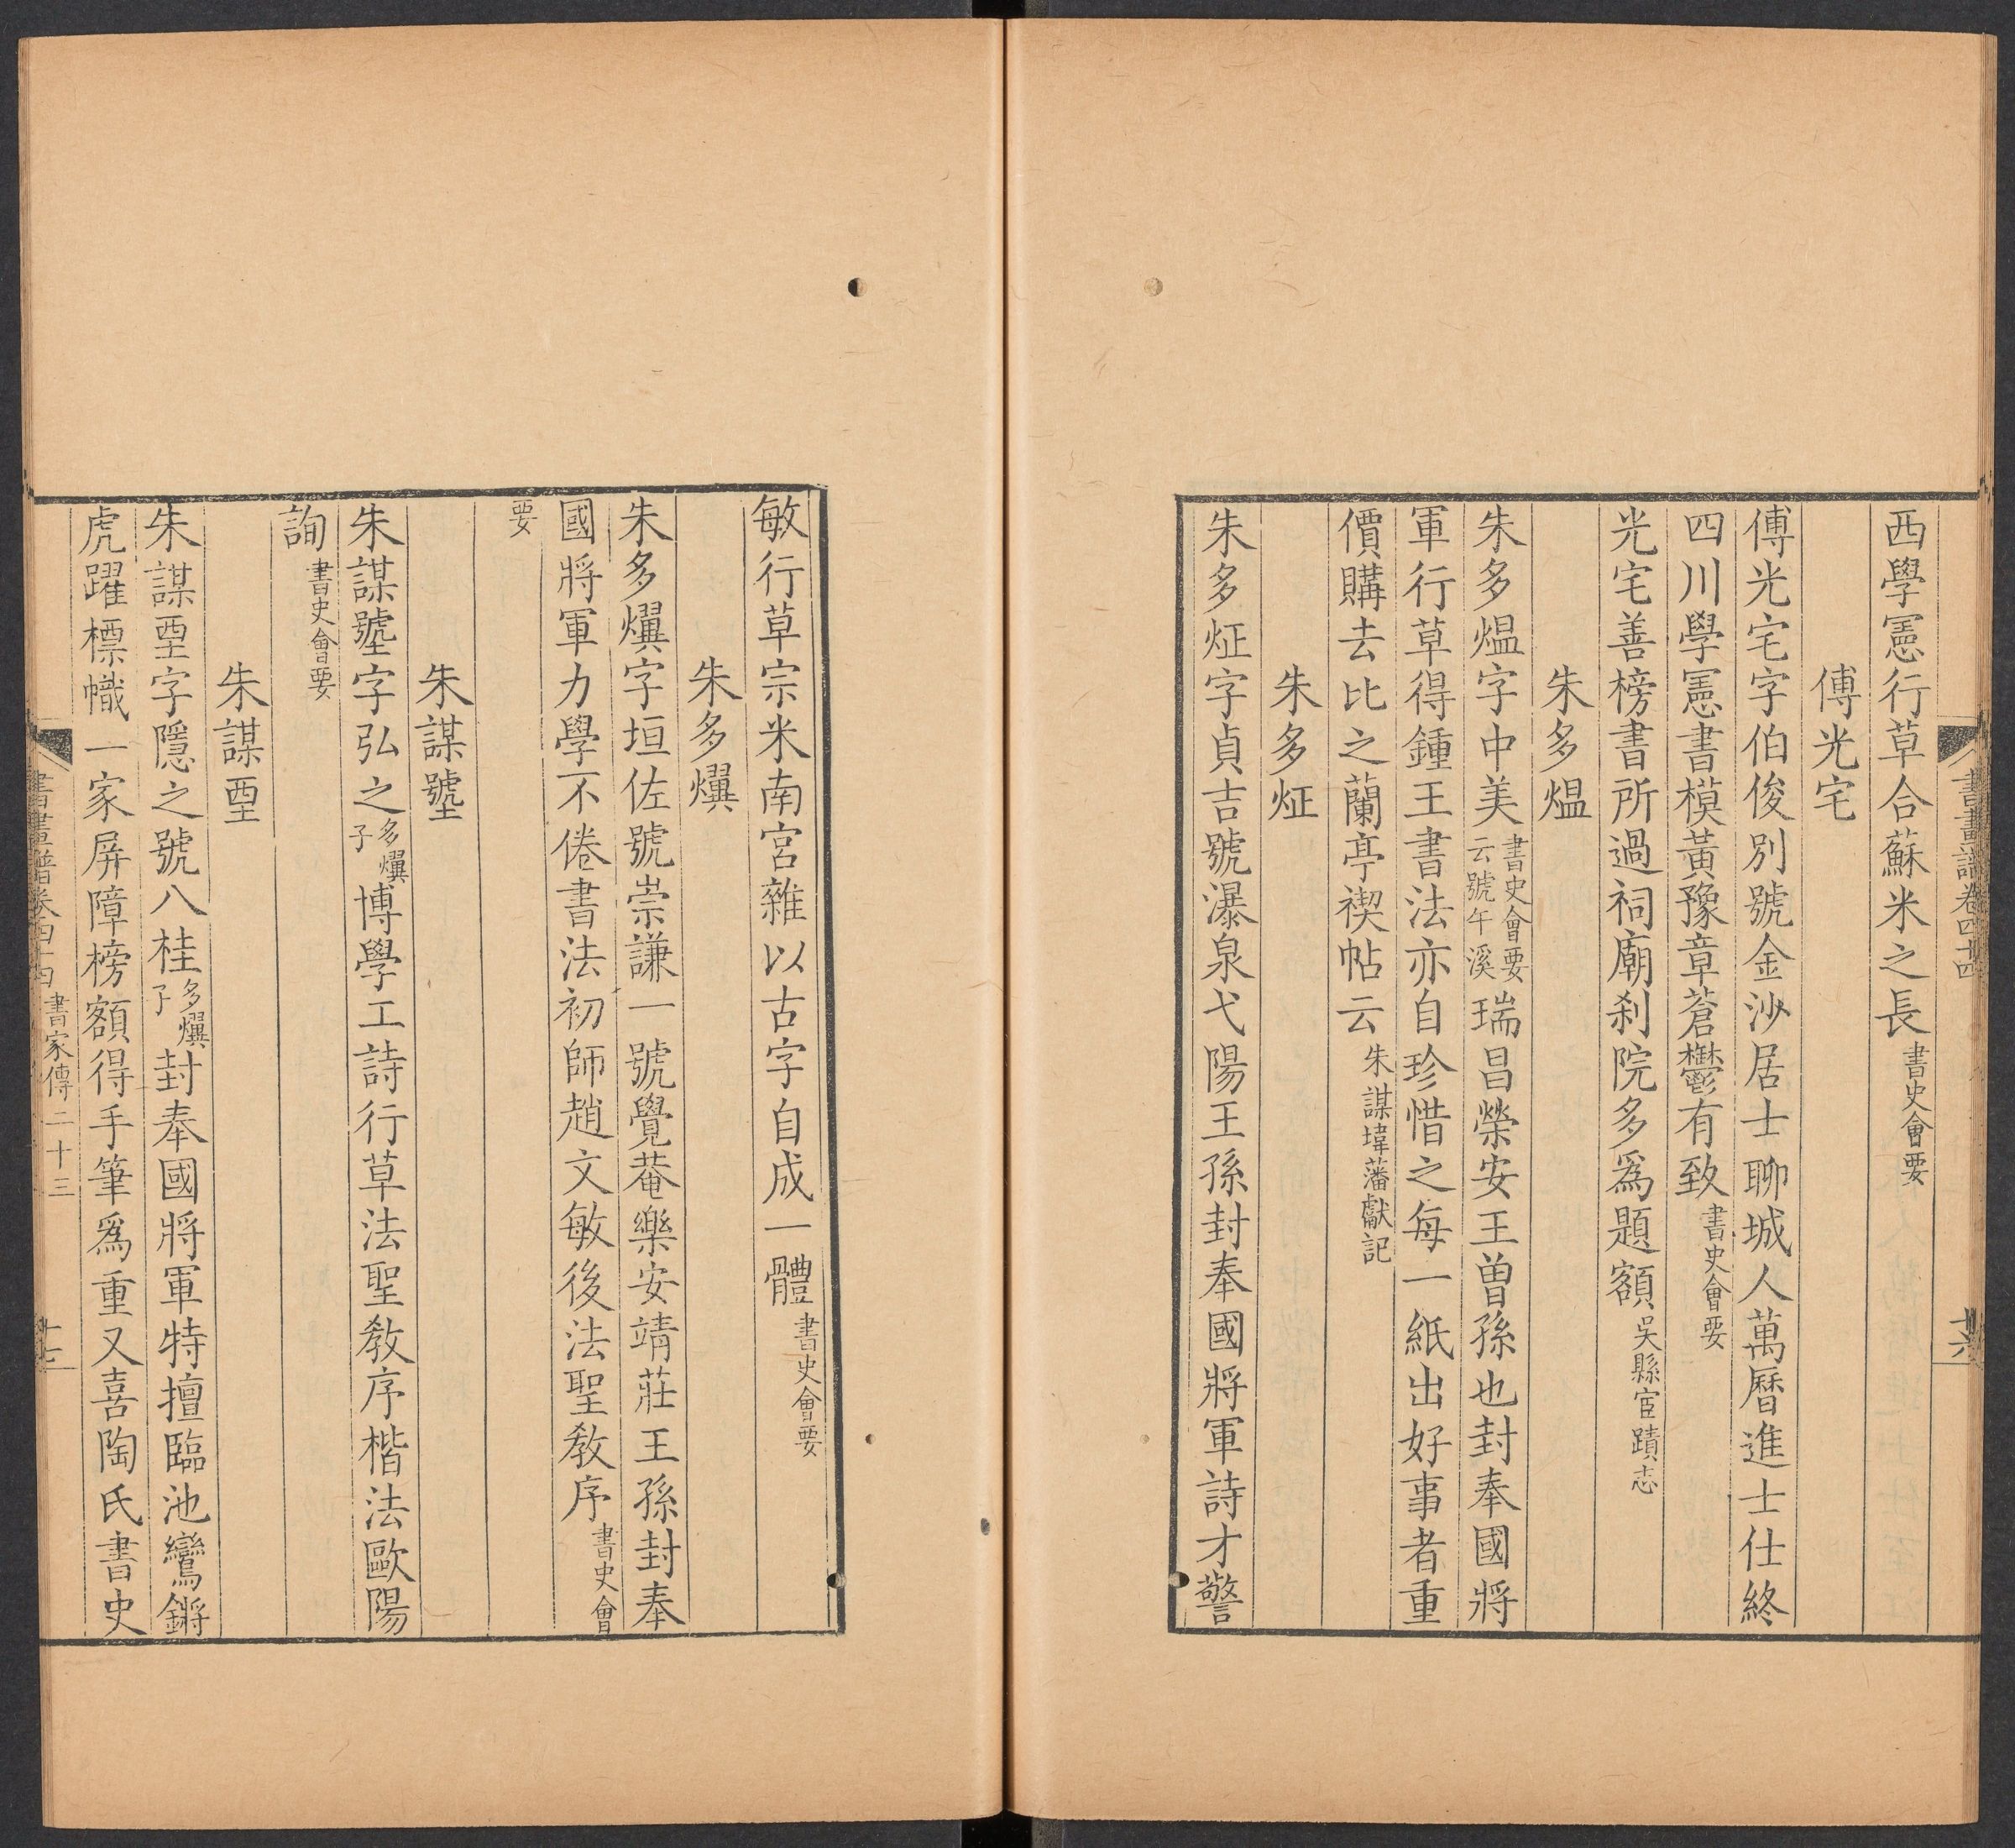 書畫譜卷四十四
十六
西學憲行草合蘇米之長書史會要
傅光宅
傅光宅字伯俊別號金沙居士聊城人萬曆進士仕終
四川學憲書模黃豫章蒼鬱有致書史會要
光宅善榜書所過祠廟刹院多爲題額吳縣宦蹟志
朱多熅
朱多熅字中美書史會要云號午溪瑞昌榮安王曽孫也封奉國將
軍行草得鍾王書法亦自珍惜之每一紙出好事者重
價購去比之蘭亭禊帖云朱謀㙔藩獻記
朱多炡
朱多炡字貞吉號瀑泉弋陽王孫封奉國將軍詩才警
敏行草宗米南宮雜以古字自成一體書史會要
朱多熼
朱多熼字垣佐號崇謙一號覺菴樂安靖莊王孫封奉
國將軍力學不倦書法初師趙文敏後法聖教序書史會
要
朱謀㙱
朱謀㙱字弘之多熼子博學工詩行草法聖教序楷法歐陽
詢書史會要
朱謀垔
朱謀垔字隱之號八桂多熼子封奉國將軍特擅臨池鸞鏘
虎躍標幟一家屏障榜額得手筆爲重又喜陶氏書史
書畫譜卷四十四 書家傳二十三
十七